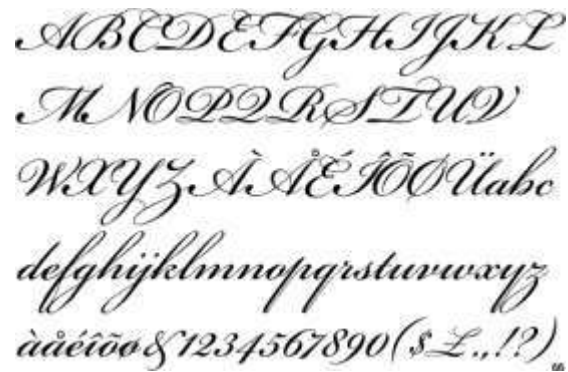 ABCDEFGHIJKL
MNOPQRSTUV
WXYZÀÅÉÎÕØÜabc
defghijklmnopqrstuvwxyz
àåéîõø&1234567890($£.,!?)